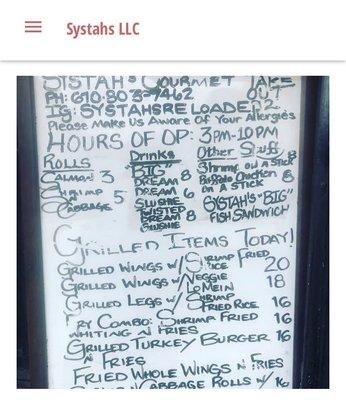 Systahs LLC
SISTAH'S GOURMET TAKE OUT
PH: 610-803-7462
IG: SYSTAHSRELOADED2
Please Make Us Aware Of Your Allergies
HOURS OF OP: 3PM-10PM
ROLLS
CALMARI 3
SHRIMP
N CABBAGE 5
Drinks
"BIG"
DREAM 8
DREAM 6
SLUSHIE
TWISTED
DREAM 8
SLUSHIE
Other Stuff
Shrimp on a Stick 8
Buffalo Chicken
on A Stick 8
SYSTAH'S "BIG"
FISH SANDWICH
GRILLED ITEMS TODAY!
GRILLED WINGS W/ SHRIMP FRIED RICE 20
GRILLED WINGS W/ VEGGIE LOMEIN 18
GRILLED LEGS W/ SHRIMP FRIED RICE 16
FRY COMBO: SHRIMP FRIED 16
WHITING N FRIES
GRILLED TURKEY BURGER 16
N FRIES
FRIED WHOLE WINGS N FRIES
CABBAGE ROLLS W/ 16